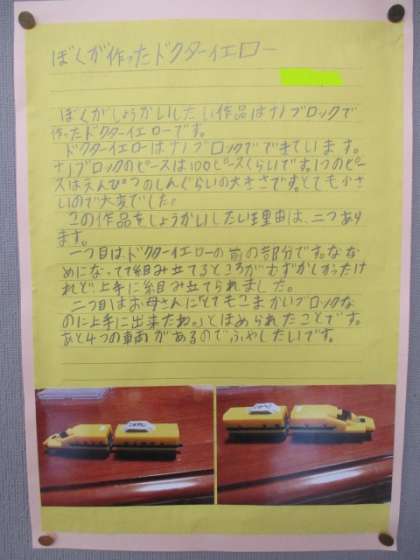 ぼくが作ったドクターイエロー
ぼくがしょうかいしたい作品はナノブロックで
作ったドクターイエローです。
ドクターイエローはナノブロックでできています。
ナノブロックのピースは100ピースくらいです。1つのピー
スはえんぴつのしんぐらいの大きさです。とても小さ
いので大変でした。
この作品をしょうかいしたい理由は、二つあり
ます。
一つ目はドクターイエローの前の部分です。なな
めになってて組み立てるところがむずかしかったけ
れど、上手に組み立てられました。
二つ目はお母さんに「とてもこまかいブロックな
のに上手に出来たね。」とほめられたことです。
あと4つの車両があるのでふやしたいです。